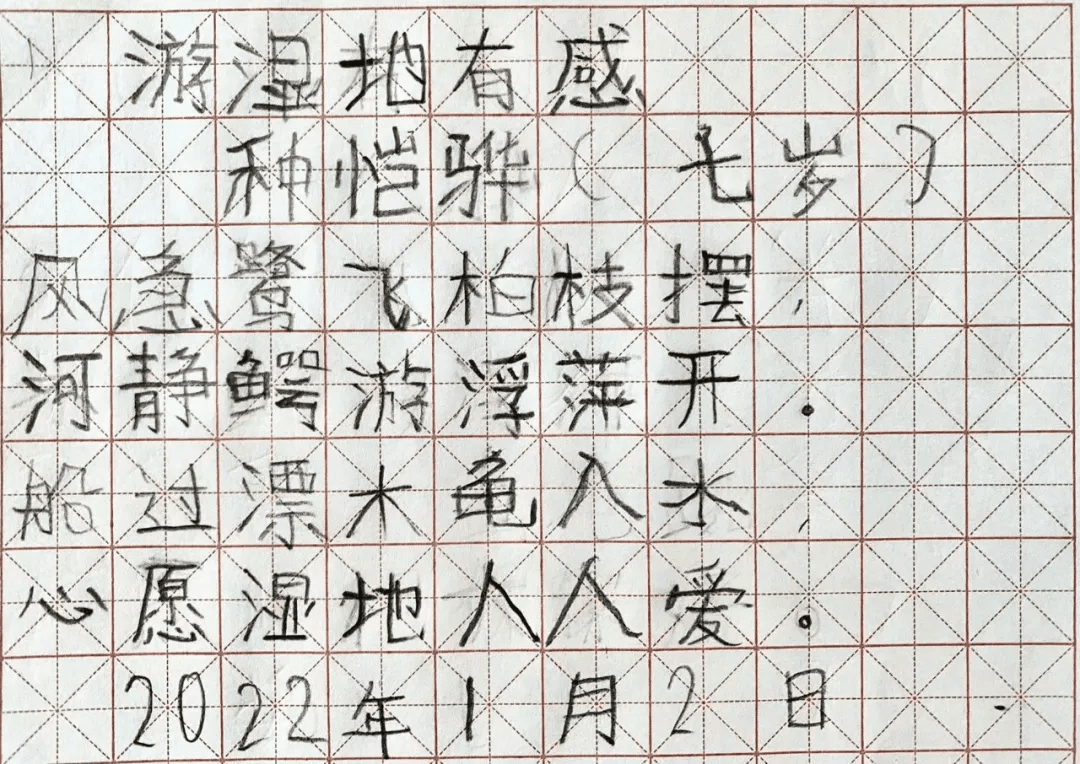 游湿地有感
种恺骅（七岁）
风急鹭飞柏枝摆，
河静鳄游浮萍开.
船过漂木龟入水，
心愿湿地人人爱.
2022年1月2日